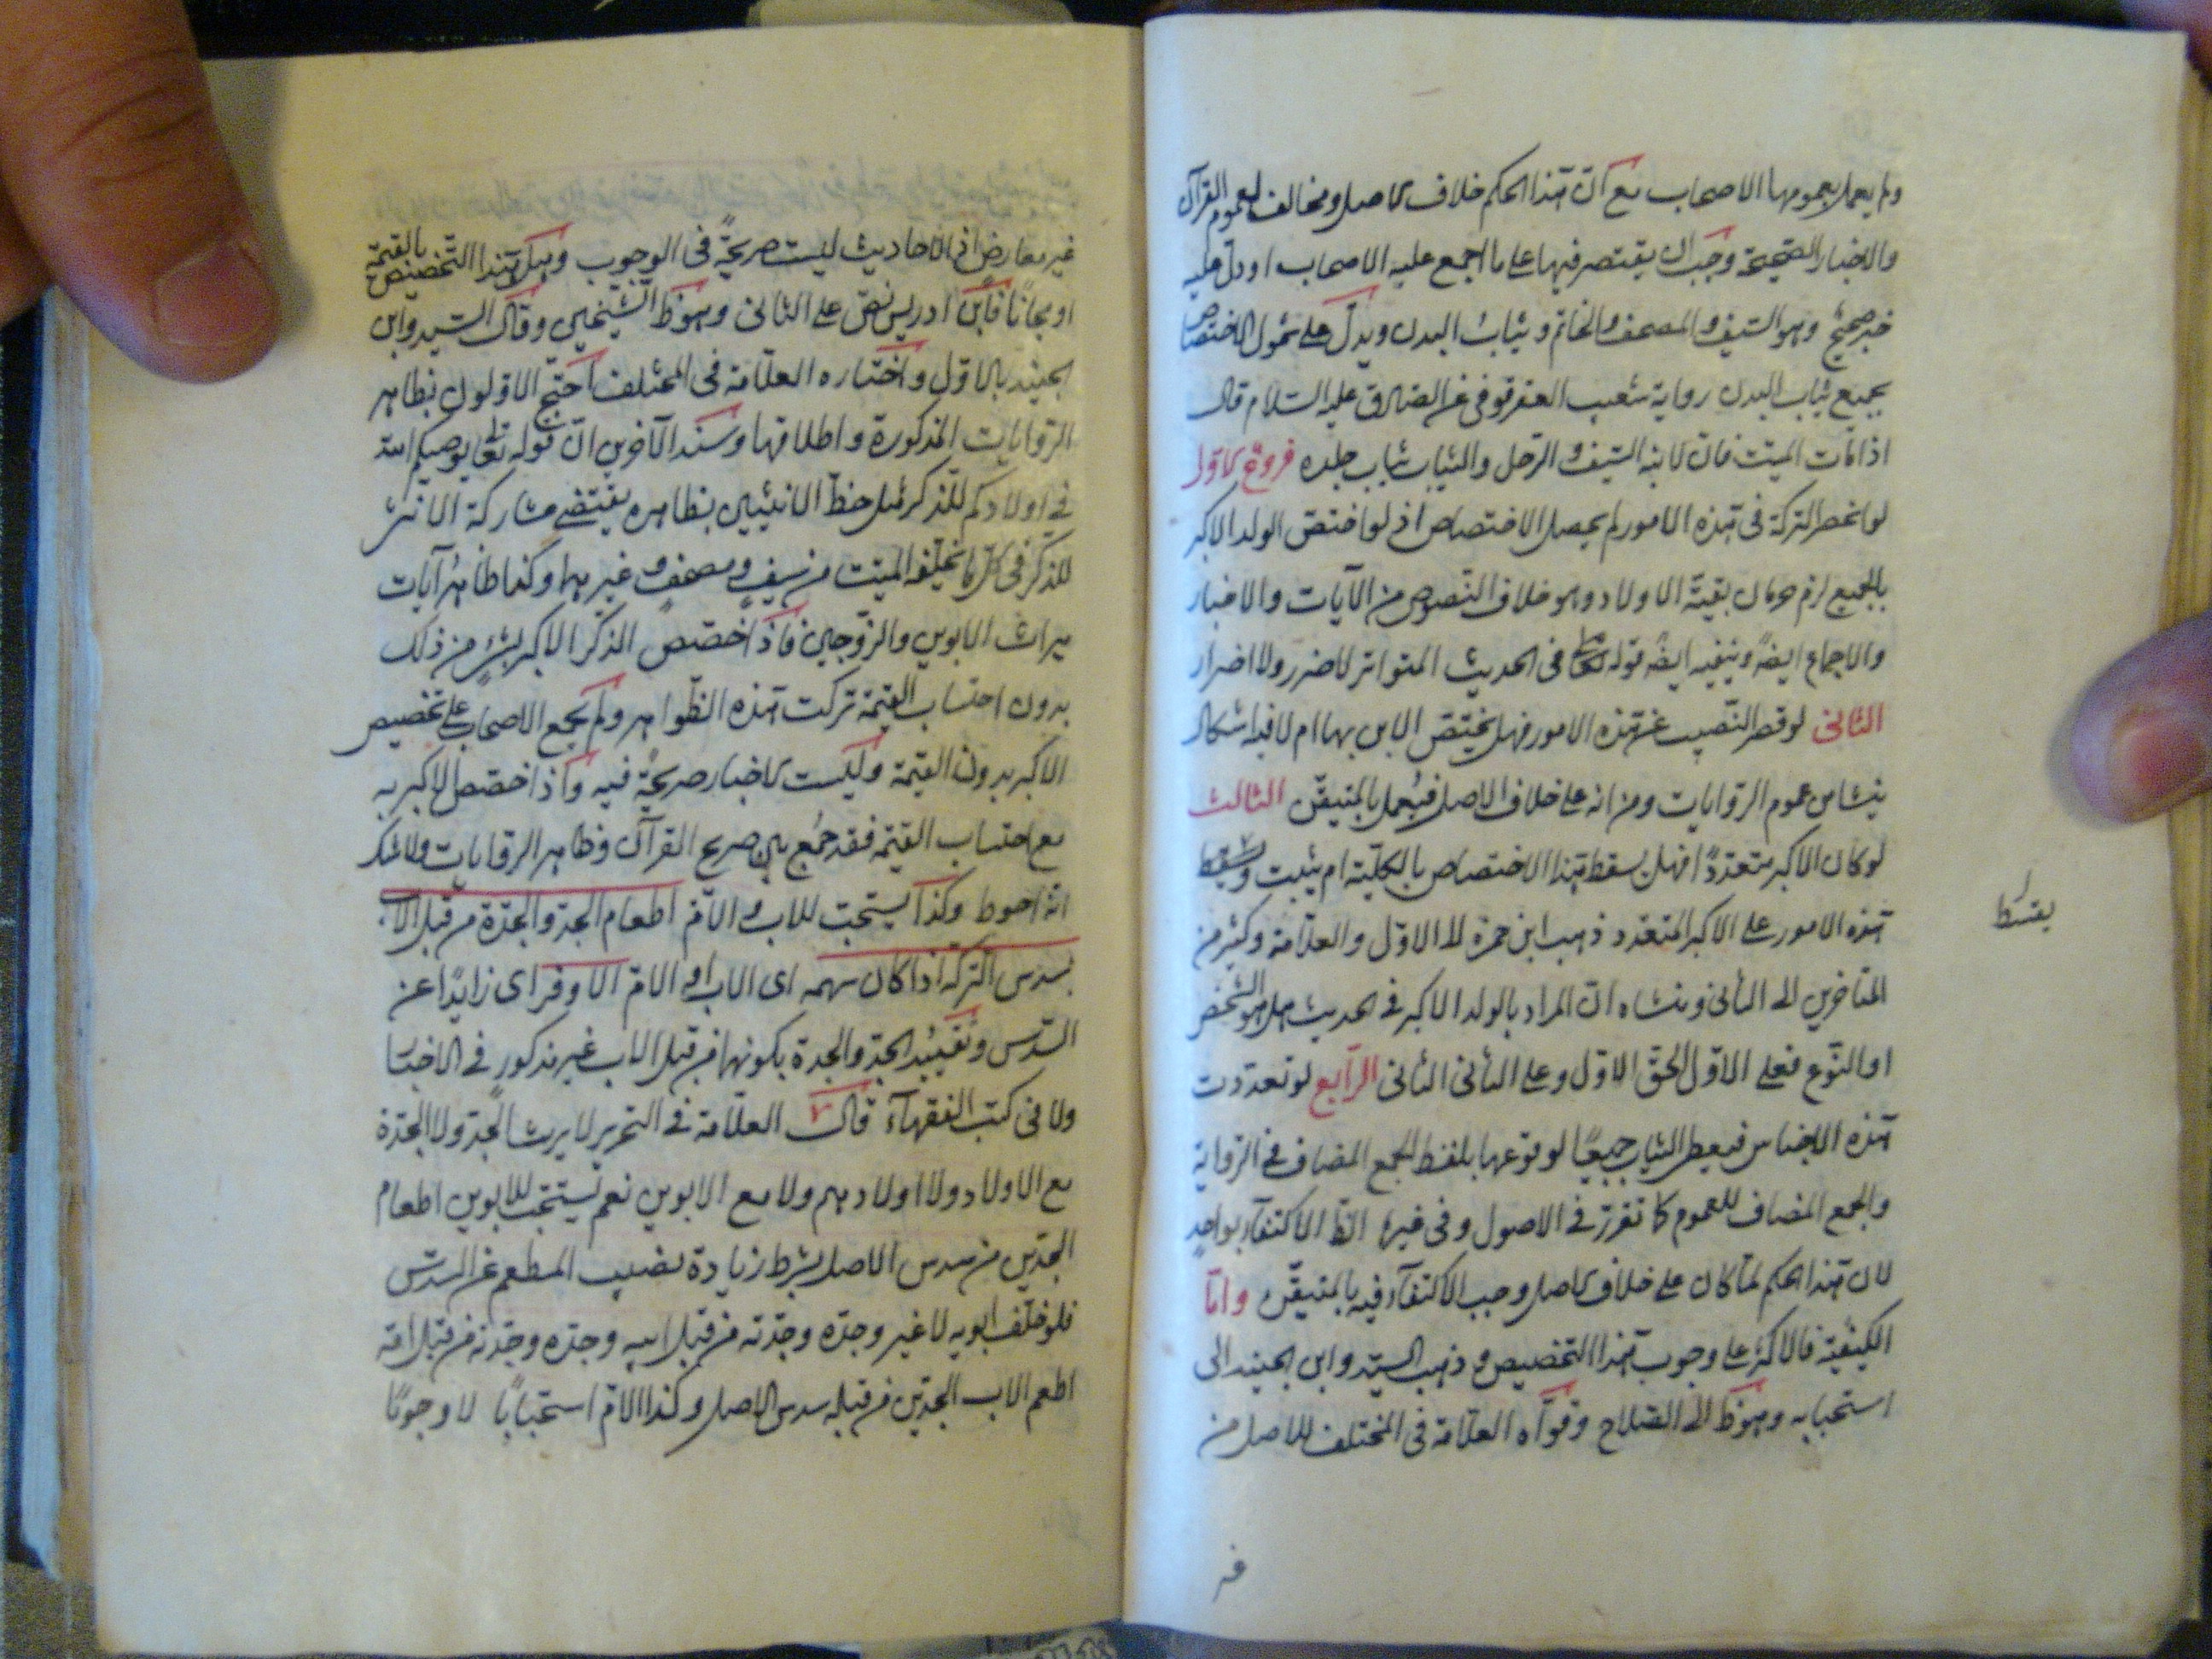 ولم يعمل بعمومها الاصحاب مع ان هذا الحكم خلاف الاصل ومخالف لعموم القرآن
والاخبار الصحيحة وجب ان يقتصر فيها على ما اجمع عليه الاصحاب او دل عليه
خبر صحيح وهو السيف والمصحف والخاتم وثياب البدن ويدل على شمول الاختصاص
بجميع ثياب البدن رواية شعيب العقرقوفى عن الصادق عليه السلام قال
اذا مات الميت فان لابنه السيف والرحل والثياب ثياب جلده فروع الاول
لو انحصر التركة فى هذه الامور لم يحصل الاختصاص اذ لو اختص الولد الاكبر
بالجميع لزم حرمان بقية الاولاد وهو خلاف النصوص من الآيات والاخبار
والاجماع ايضا وينفيه ايضا قوله فى الحديث المتواتر لا ضرر ولا اضرار
الثانى لو قصر النصيب عن هذه الامور فهل يختص الابن بها ام لا فيه اشكال
ينشا من عموم الروايات ومن انه على خلاف الاصل فيعمل بالمتيقن الثالث
لو كان الاكبر متعددا فهل يسقط هذا الاختصاص بالكلية ام يثبت ويقسط
يقسط
هذه الامور على الاكبر المتعدد ذهب ابن حمزة الى الاول والعلامة وكثير من
المتاخرين الى الثانى ومنشاه ان المراد بالولد الاكبر فى الحديث هل هو الشخص
او النوع فعلى الاول الحق الاول وعلى الثانى الثانى الرابع لو تعددت
هذه الاجناس فيعطى الثياب جميعا لوقوعها بلفظ الجمع المضاف فى الرواية
والجمع المضاف للعموم كما تقرر فى الاصول وفى غيرها الظ الاكتفاء بواحد
لان هذا الحكم لما كان على خلاف الاصل وجب الاكتفاء فيه بالمتيقن واما
الكيفية فالاكثر على وجوب هذا التخصيص و ذهب السيد وابن الجنيد الى
استحبابه وهو ظ ابى الصلاح وقواه العلامة فى المختلف للاصل من
غير
غير معارض اذ الاحاديث ليست صريحة فى الوجوب وهل هذا التخصيص بالقيمة
او مجانا فابن ادريس نص على الثانى وهو ظ الشيخين وقال السيد وابن
الجنيد بالاول واختاره العلامة فى المختلف احتج الاولون بظاهر
الروايات المذكورة واطلاقها وسند الآخرين ان قوله تعالى يوصيكم الله
فى اولادكم للذكر مثل حظ الانثيين بظاهره يقتضى مشاركة الانثى
للذكر فى كل ما يخلفه الميت من سيف ومصحف و غيرهما وكذا ظاهر آيات
ميراث الابوين والزوجين فاذا خصص الذكر الاكبر بشئ من ذلك
بدون احتساب القيمة تركت هذه الظواهر ولم يجمع الاصحاب على تخصيص
الاكبر بدون القيمة وليست الاخبار صريحة فيه واذا خصص الاكبر به
مع احتساب القيمة فقد جمع بين صريح القرآن وظاهر الروايات ولا شك
انه احوط وكذا يستحب للاب و الام اطعام الجد والجدة من قبل الاب
بسدس التركة اذا كان سهمه اى الاب او الام الاوفر اى زايدا عن
السدس وتقييد الجد والجدة بكونهما من قبل الاب غير مذكور فى الاخبار
ولا فى كتب الفقهاء قال العلامة فى التحرير لا يرث الجد ولا الجدة
مع الاولاد ولا اولادهم ولا مع الابوين نعم يستحب للابوين اطعام
الجدين من سدس الاصل بشرط زيادة نصيب المطعم عن السدس
فلو خلف ابويه لا غير وجده وجدته من قبل ابيه وجده وجدته من قبل امه
اطعم الاب الجدين من قبله سدس الاصل وكذا الام استحبابا لا وجوبا